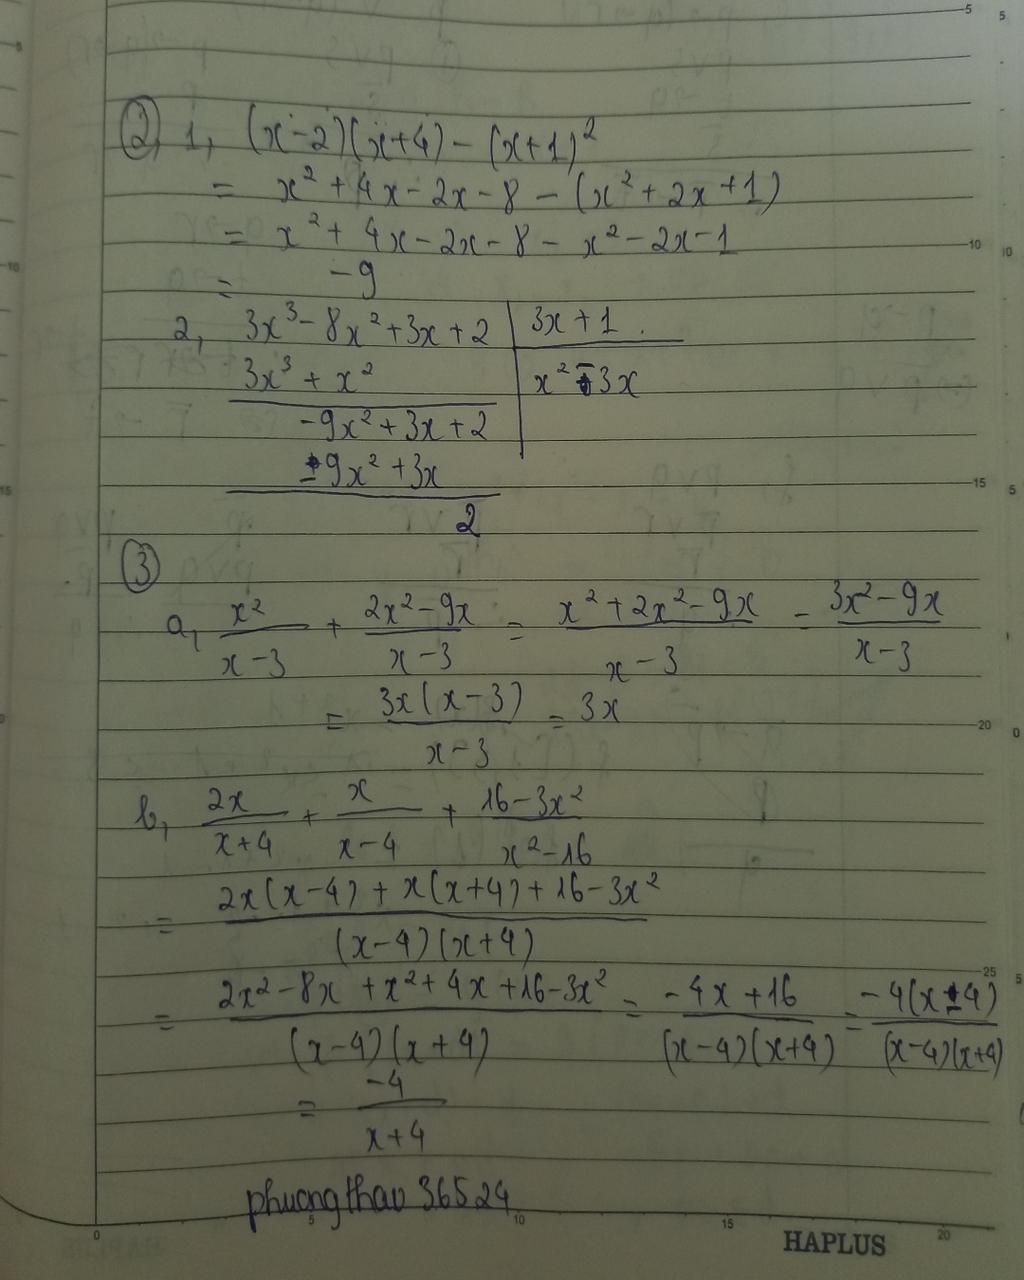 ② 1, (x-2)(x+4) - (x+1)²
= x² + 4x - 2x - 8 - (x² + 2x + 1)
= x² + 4x - 2x - 8 - x² - 2x - 1
= -9
2, 3x³ - 8x² + 3x + 2 | 3x + 1
3x³ + x² | x² - 3x
-9x² + 3x + 2
-9x² + 3x
2
③
a, x²/(x-3) + (2x² - 9x)/(x-3) = (x² + 2x² - 9x)/(x-3) = (3x² - 9x)/(x-3)
= 3x(x-3)/(x-3) = 3x
b, 2x/(x+4) + x/(x-4) + (16-3x²)/(x²-16)
= (2x(x-4) + x(x+4) + 16-3x²)/((x-4)(x+4))
= (2x² - 8x + x² + 4x + 16-3x²)/((x-4)(x+4)) = (-4x + 16)/((x-4)(x+4)) = -4(x-4)/((x-4)(x+4))
= -4/(x+4)
phuongthao 36524
HAPLUS